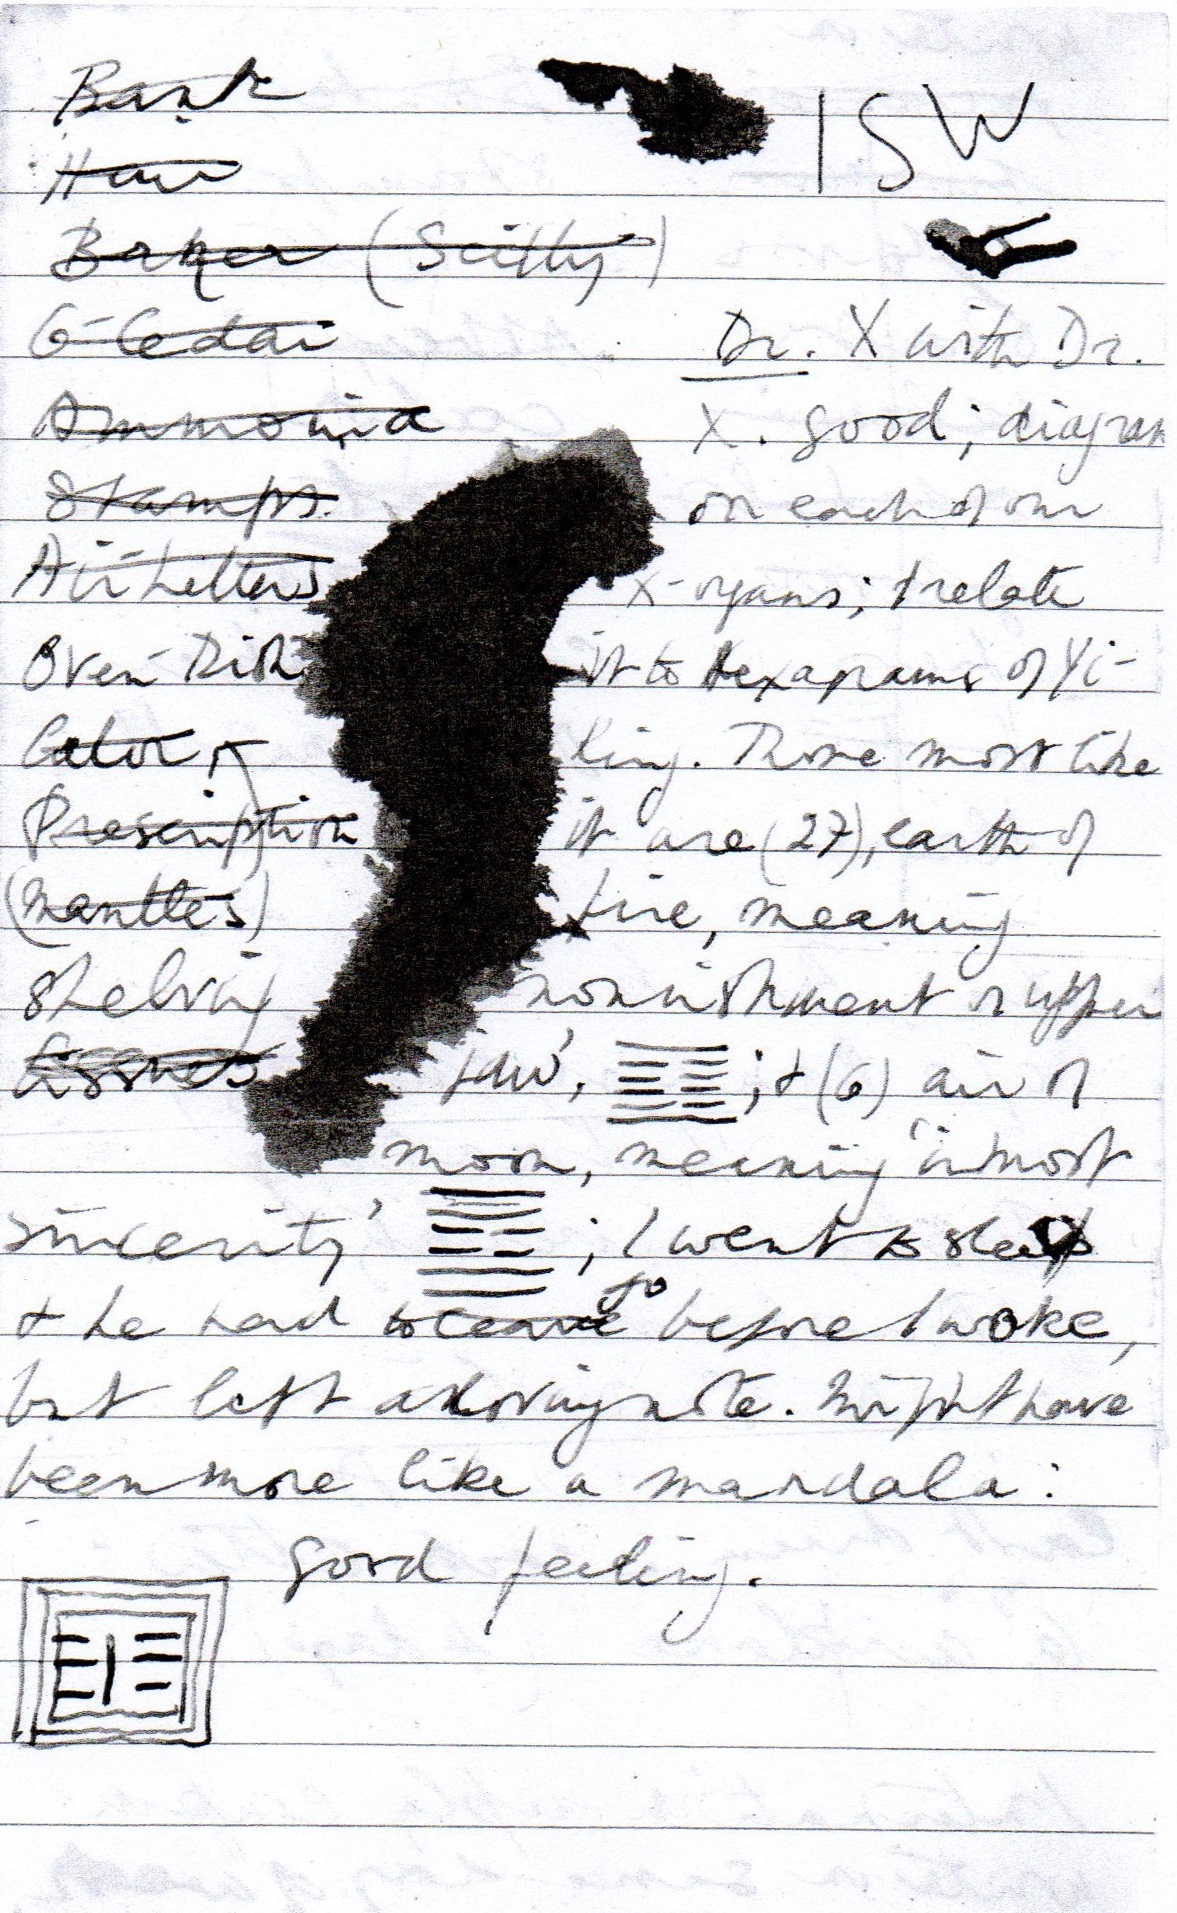 Bank
Hair
ISW
Baker (Scilly)
G-Cedar
Dr. X with Dr.
Ammonia
X. good; diagram
Stamps.
on each of our
Air Letters
X-organs; & relate
Oven Dish
it to Hexagrams of Yi-
Calor
King. Those most like
Prescription
it are (27), earth of
(mantles)
fire, meaning
shelving
nourishment or upper
jaw', ; & (6) air of
moon, meaning 'inmost
sincerity' ; I went to sleep
& he had to leave go before I woke,
but left a loving note. Might have
been more like a mandala:
good feeling.